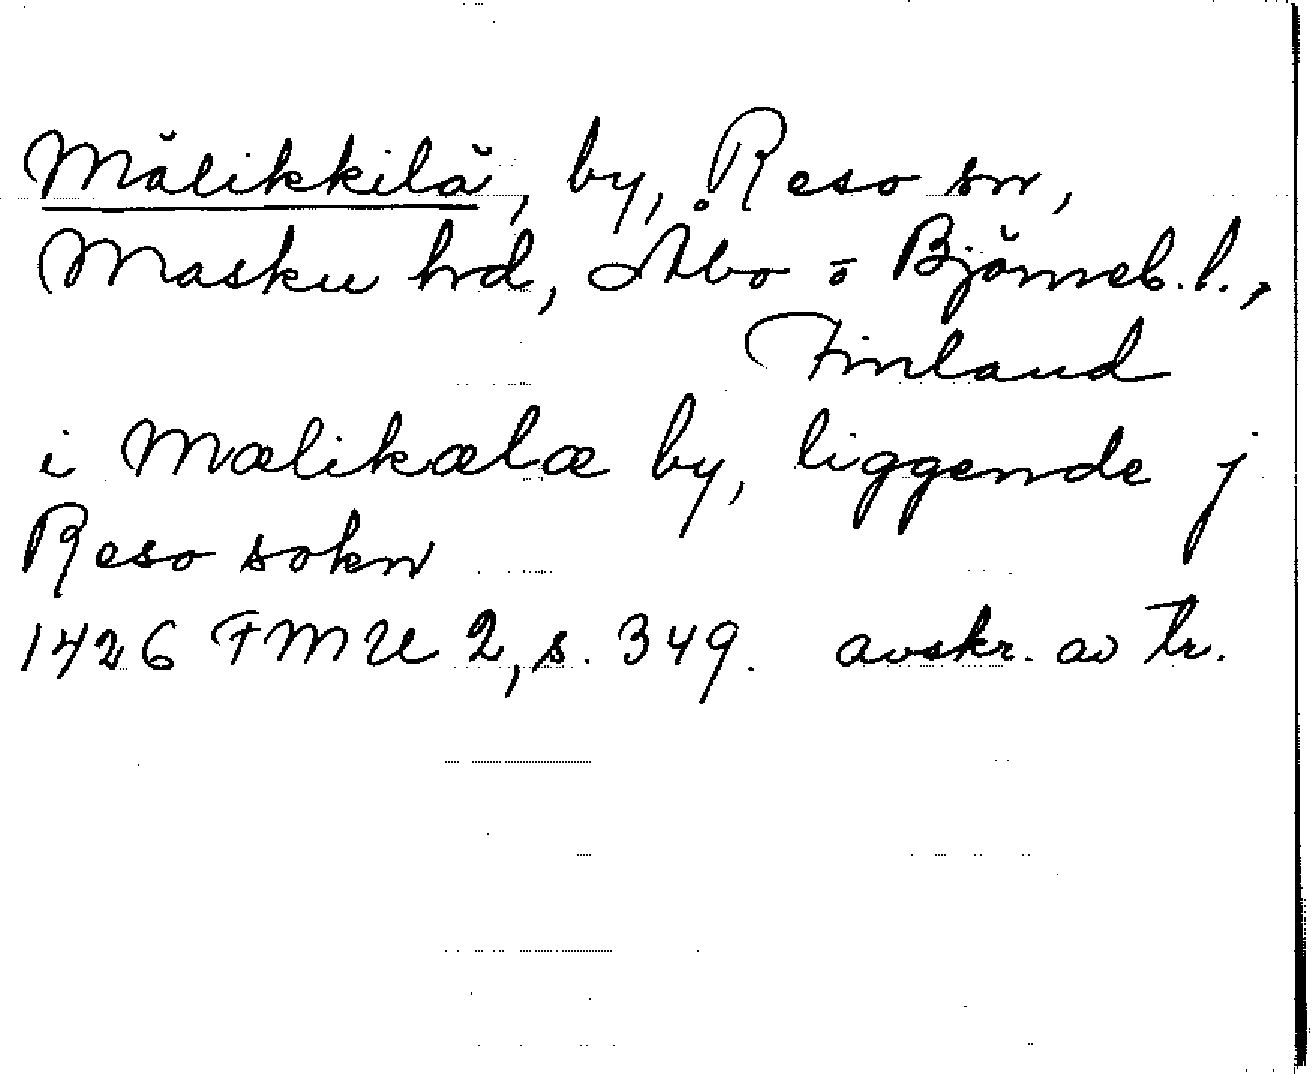 Mälikkilä, by, Reso sn,
Masku hrd, Åbo o Björneb. l.,
Finland
i Mælikælæ by, liggende j
Reso sokn
1426 FMU 2, s. 349. avskr. av tr.